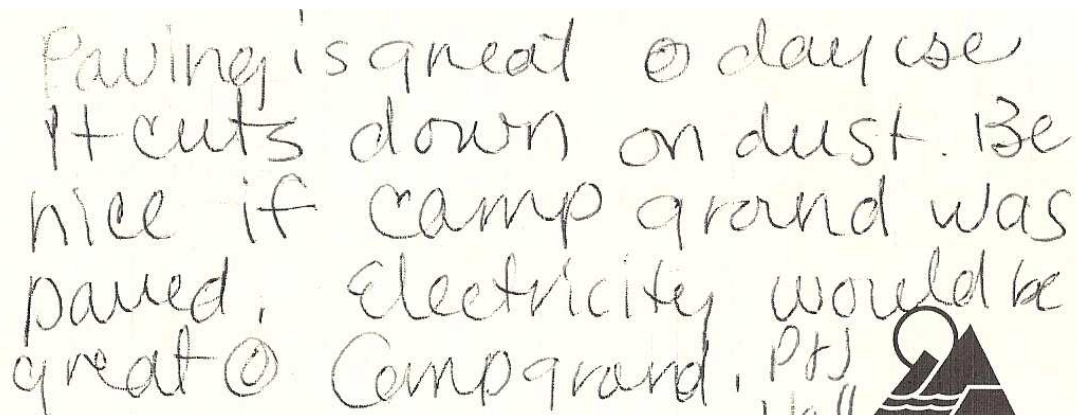 Paving is great @ day use
It cuts down on dust. Be
nice if camp ground was
paved. Electricity would be
great @ Campground.